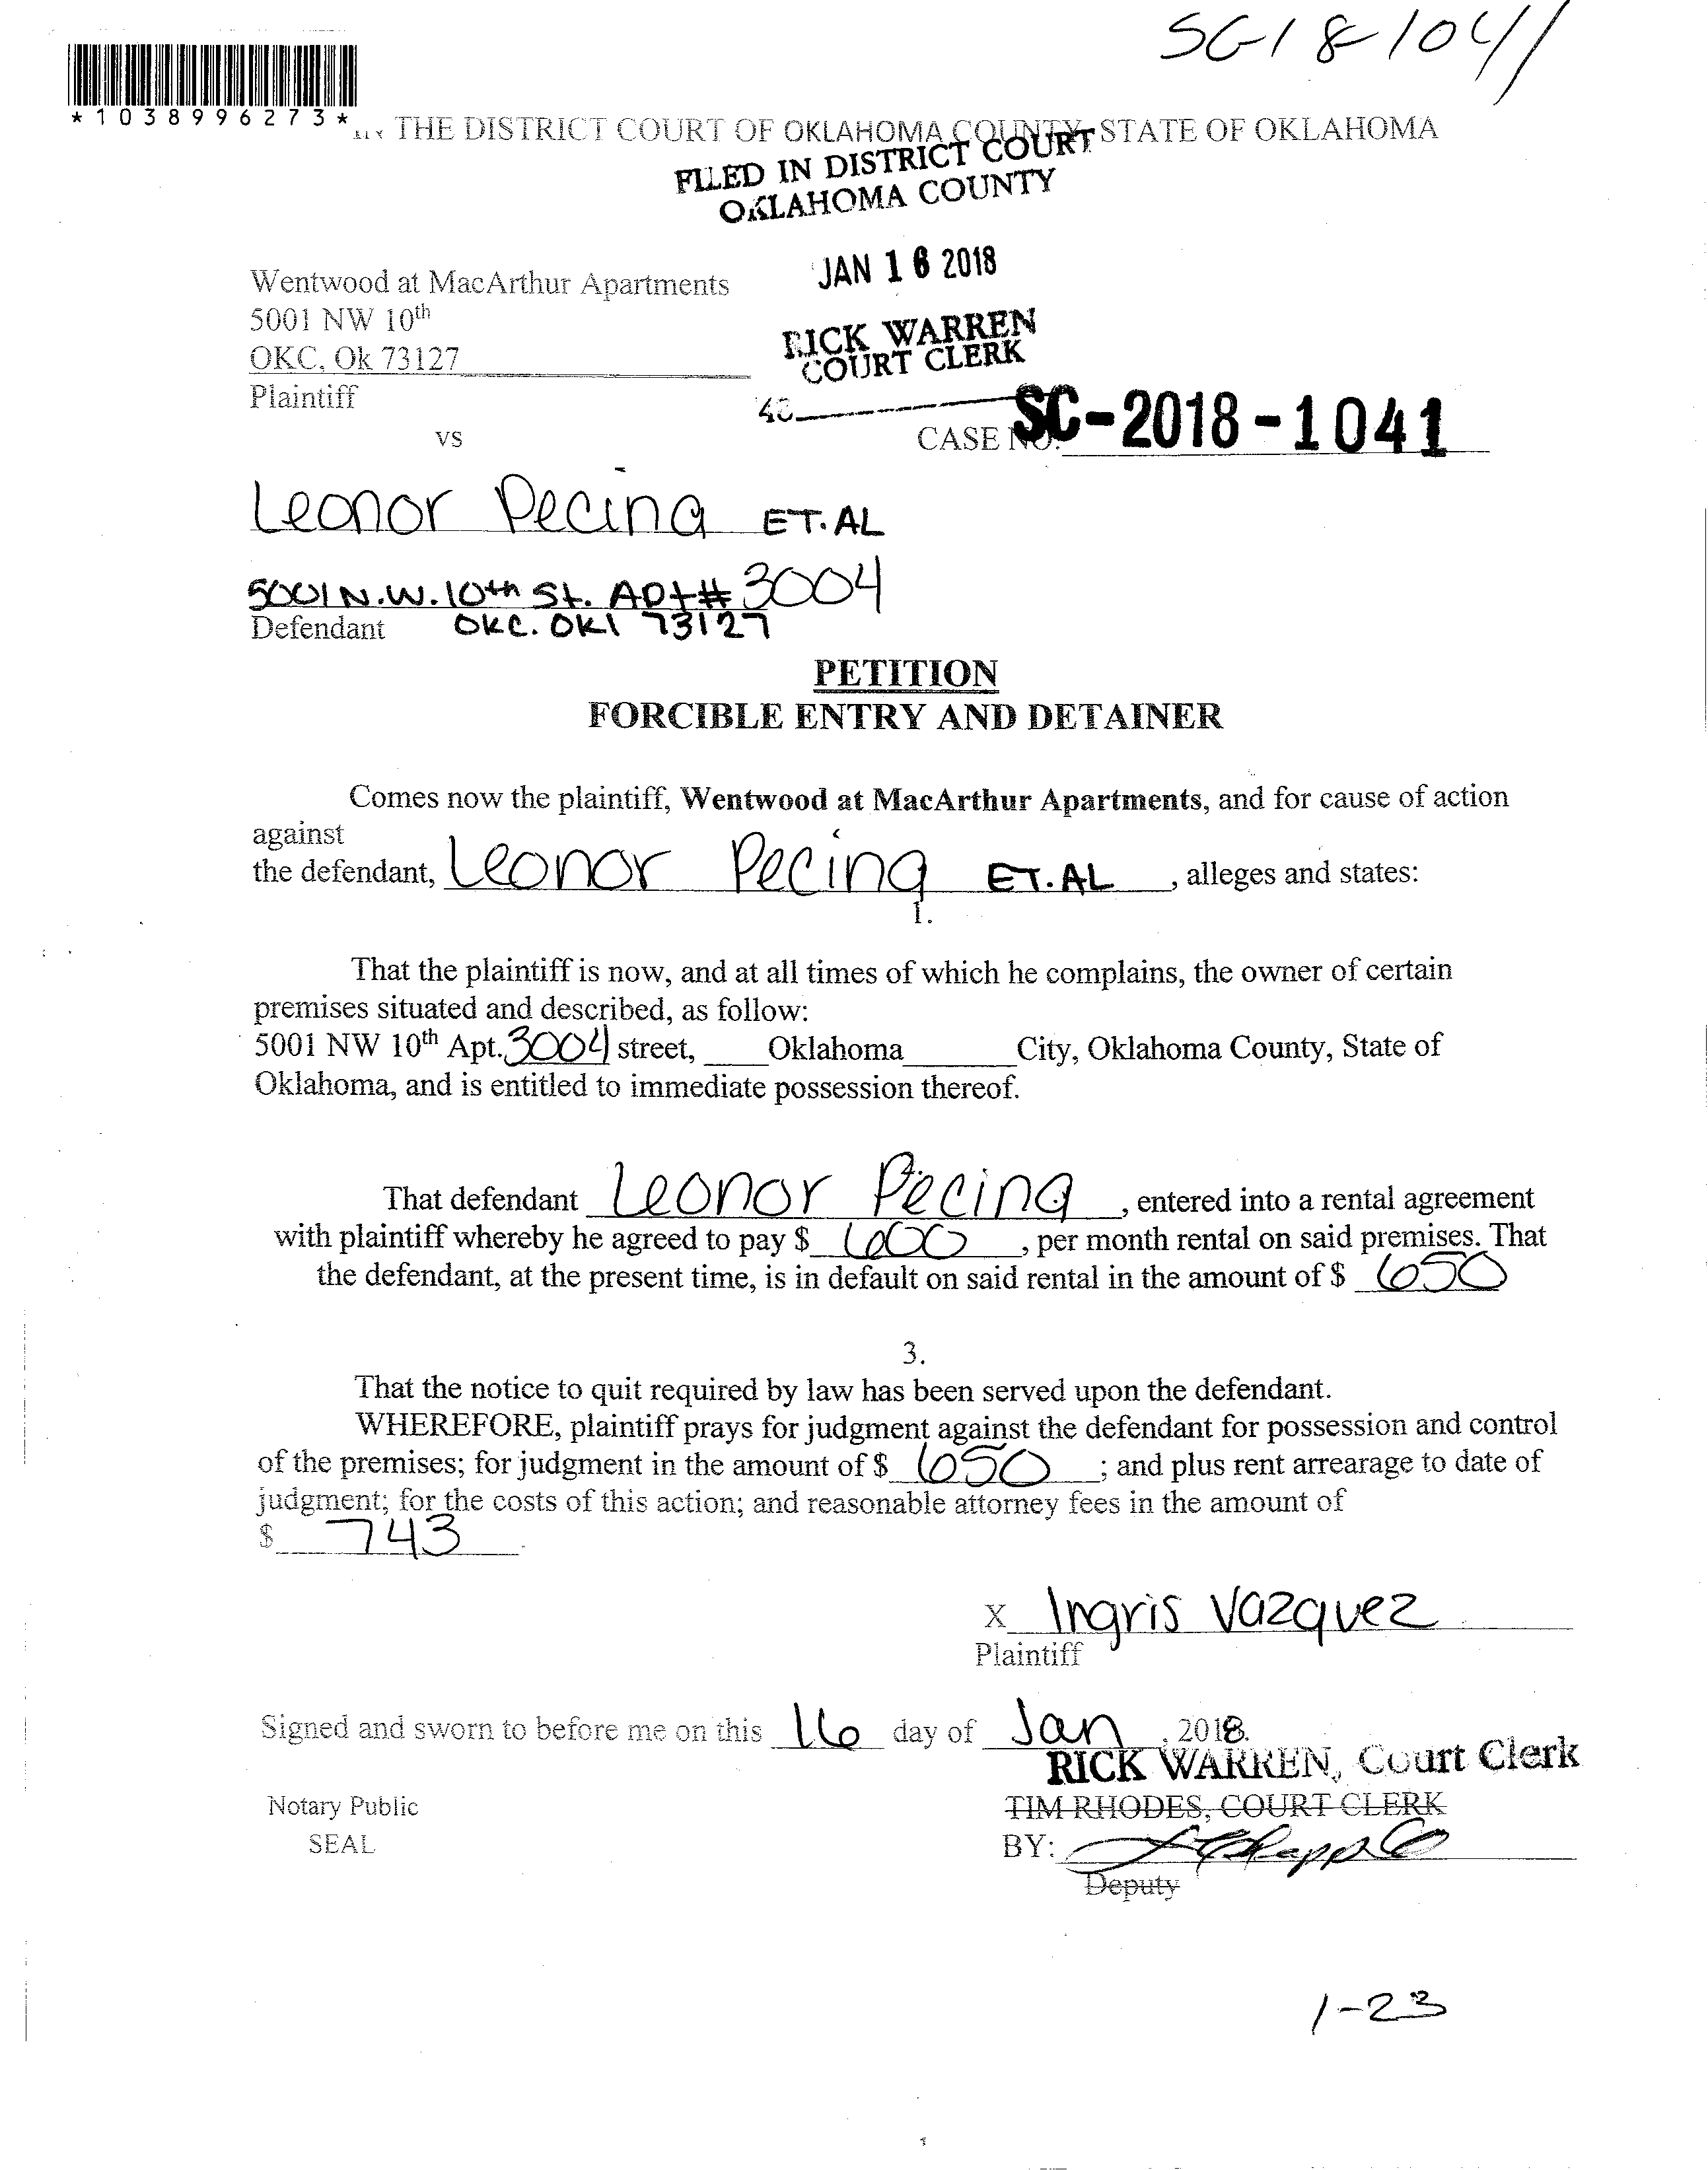 SC-18-1041
*1038996273*
IN THE DISTRICT COURT OF OKLAHOMA COUNTY, STATE OF OKLAHOMA
FILED IN DISTRICT COURT
OKLAHOMA COUNTY
JAN 16 2018
Wentwood at MacArthur Apartments
5001 NW 10th
RICK WARREN
COURT CLERK
OKC, Ok 73127
Plaintiff
SC-2018-1041
vs
CASE NO.
Leonor Pecina ET.AL
5001 N.W. 10th St. Apt# 3004
Defendant OKC. OKl 73127
PETITION
FORCIBLE ENTRY AND DETAINER
Comes now the plaintiff, Wentwood at MacArthur Apartments, and for cause of action
against
the defendant, Leonor Pecina ET.AL, alleges and states:
1.
That the plaintiff is now, and at all times of which he complains, the owner of certain
premises situated and described, as follow:
5001 NW 10th Apt. 3004 street, Oklahoma City, Oklahoma County, State of
Oklahoma, and is entitled to immediate possession thereof.
That defendant Leonor Pecina, entered into a rental agreement
with plaintiff whereby he agreed to pay $ 600, per month rental on said premises. That
the defendant, at the present time, is in default on said rental in the amount of $ 650
3.
That the notice to quit required by law has been served upon the defendant.
WHEREFORE, plaintiff prays for judgment against the defendant for possession and control
of the premises; for judgment in the amount of $ 650; and plus rent arrearage to date of
judgment; for the costs of this action; and reasonable attorney fees in the amount of
$ 743
X Ingris Vazquez
Plaintiff
Signed and sworn to before me on this 16 day of Jan, 2018.
RICK WARREN, Court Clerk
Notary Public
TIM RHODES, COURT CLERK
SEAL
BY:
Deputy
1-23